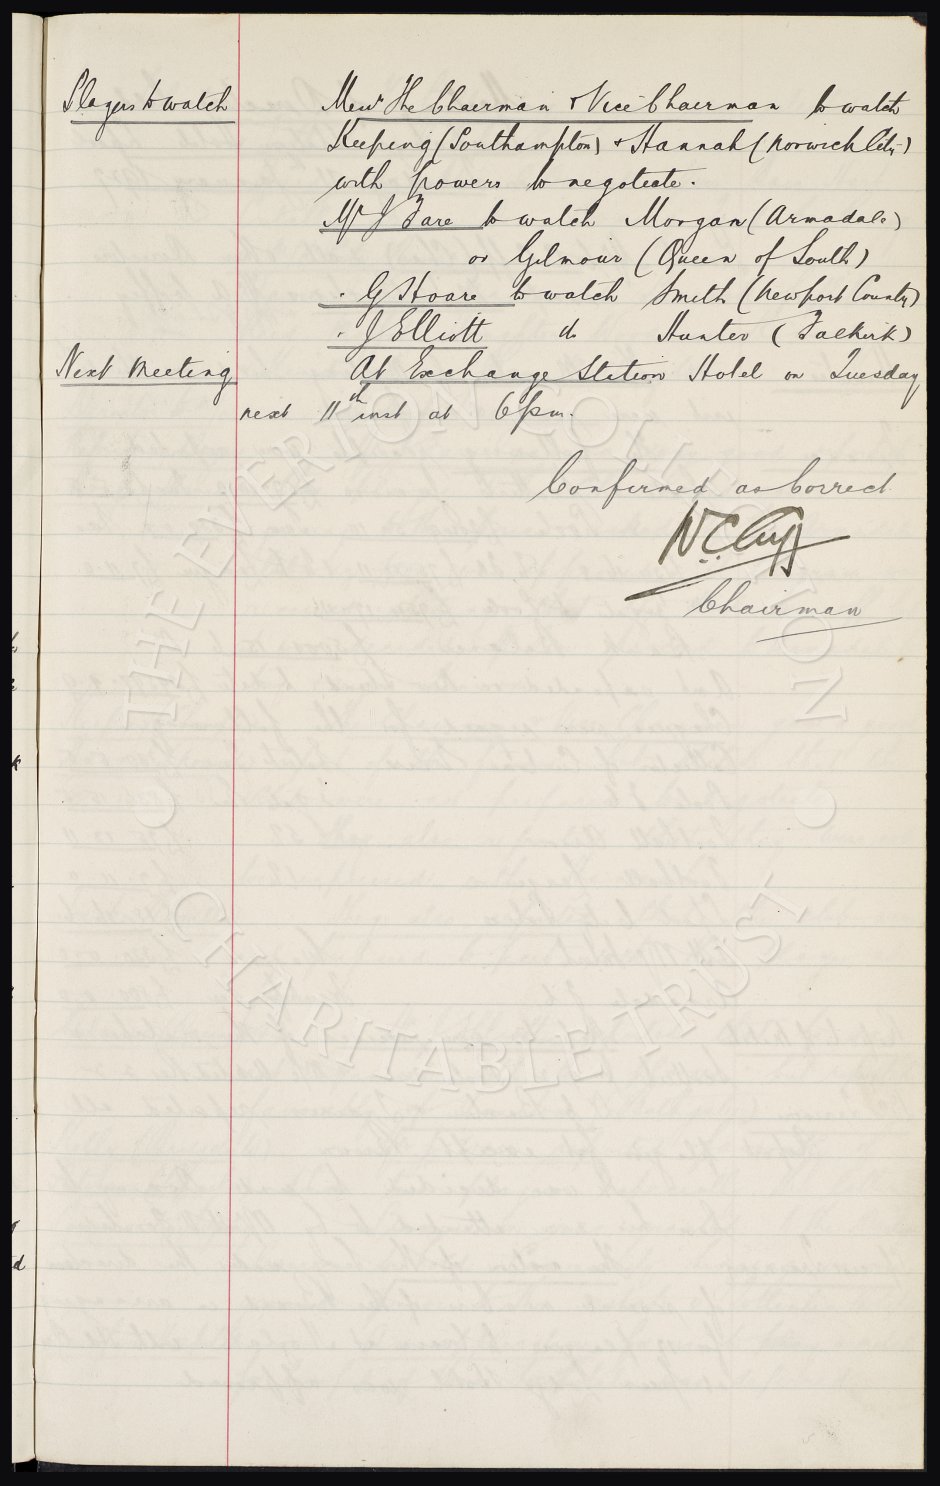 Players to watch
Messrs The Chairman & Vice Chairman to watch
Keeping (Southampton) & Hannah (Norwich City)
with powers to negotiate.
Mr J Fare to watch Morgan (Armadale)
or Gilmour (Queen of South)
" G Hoare to watch Smith (Newport County)
" J Elliott do Hunter (Falkirk)
Next Meeting At Exchange Station Hotel on Tuesday
next 11th inst at 6pm.
Confirmed as Correct
W.C. Cuff
Chairman
THE EVERTON COLLECTION
CHARITABLE TRUST